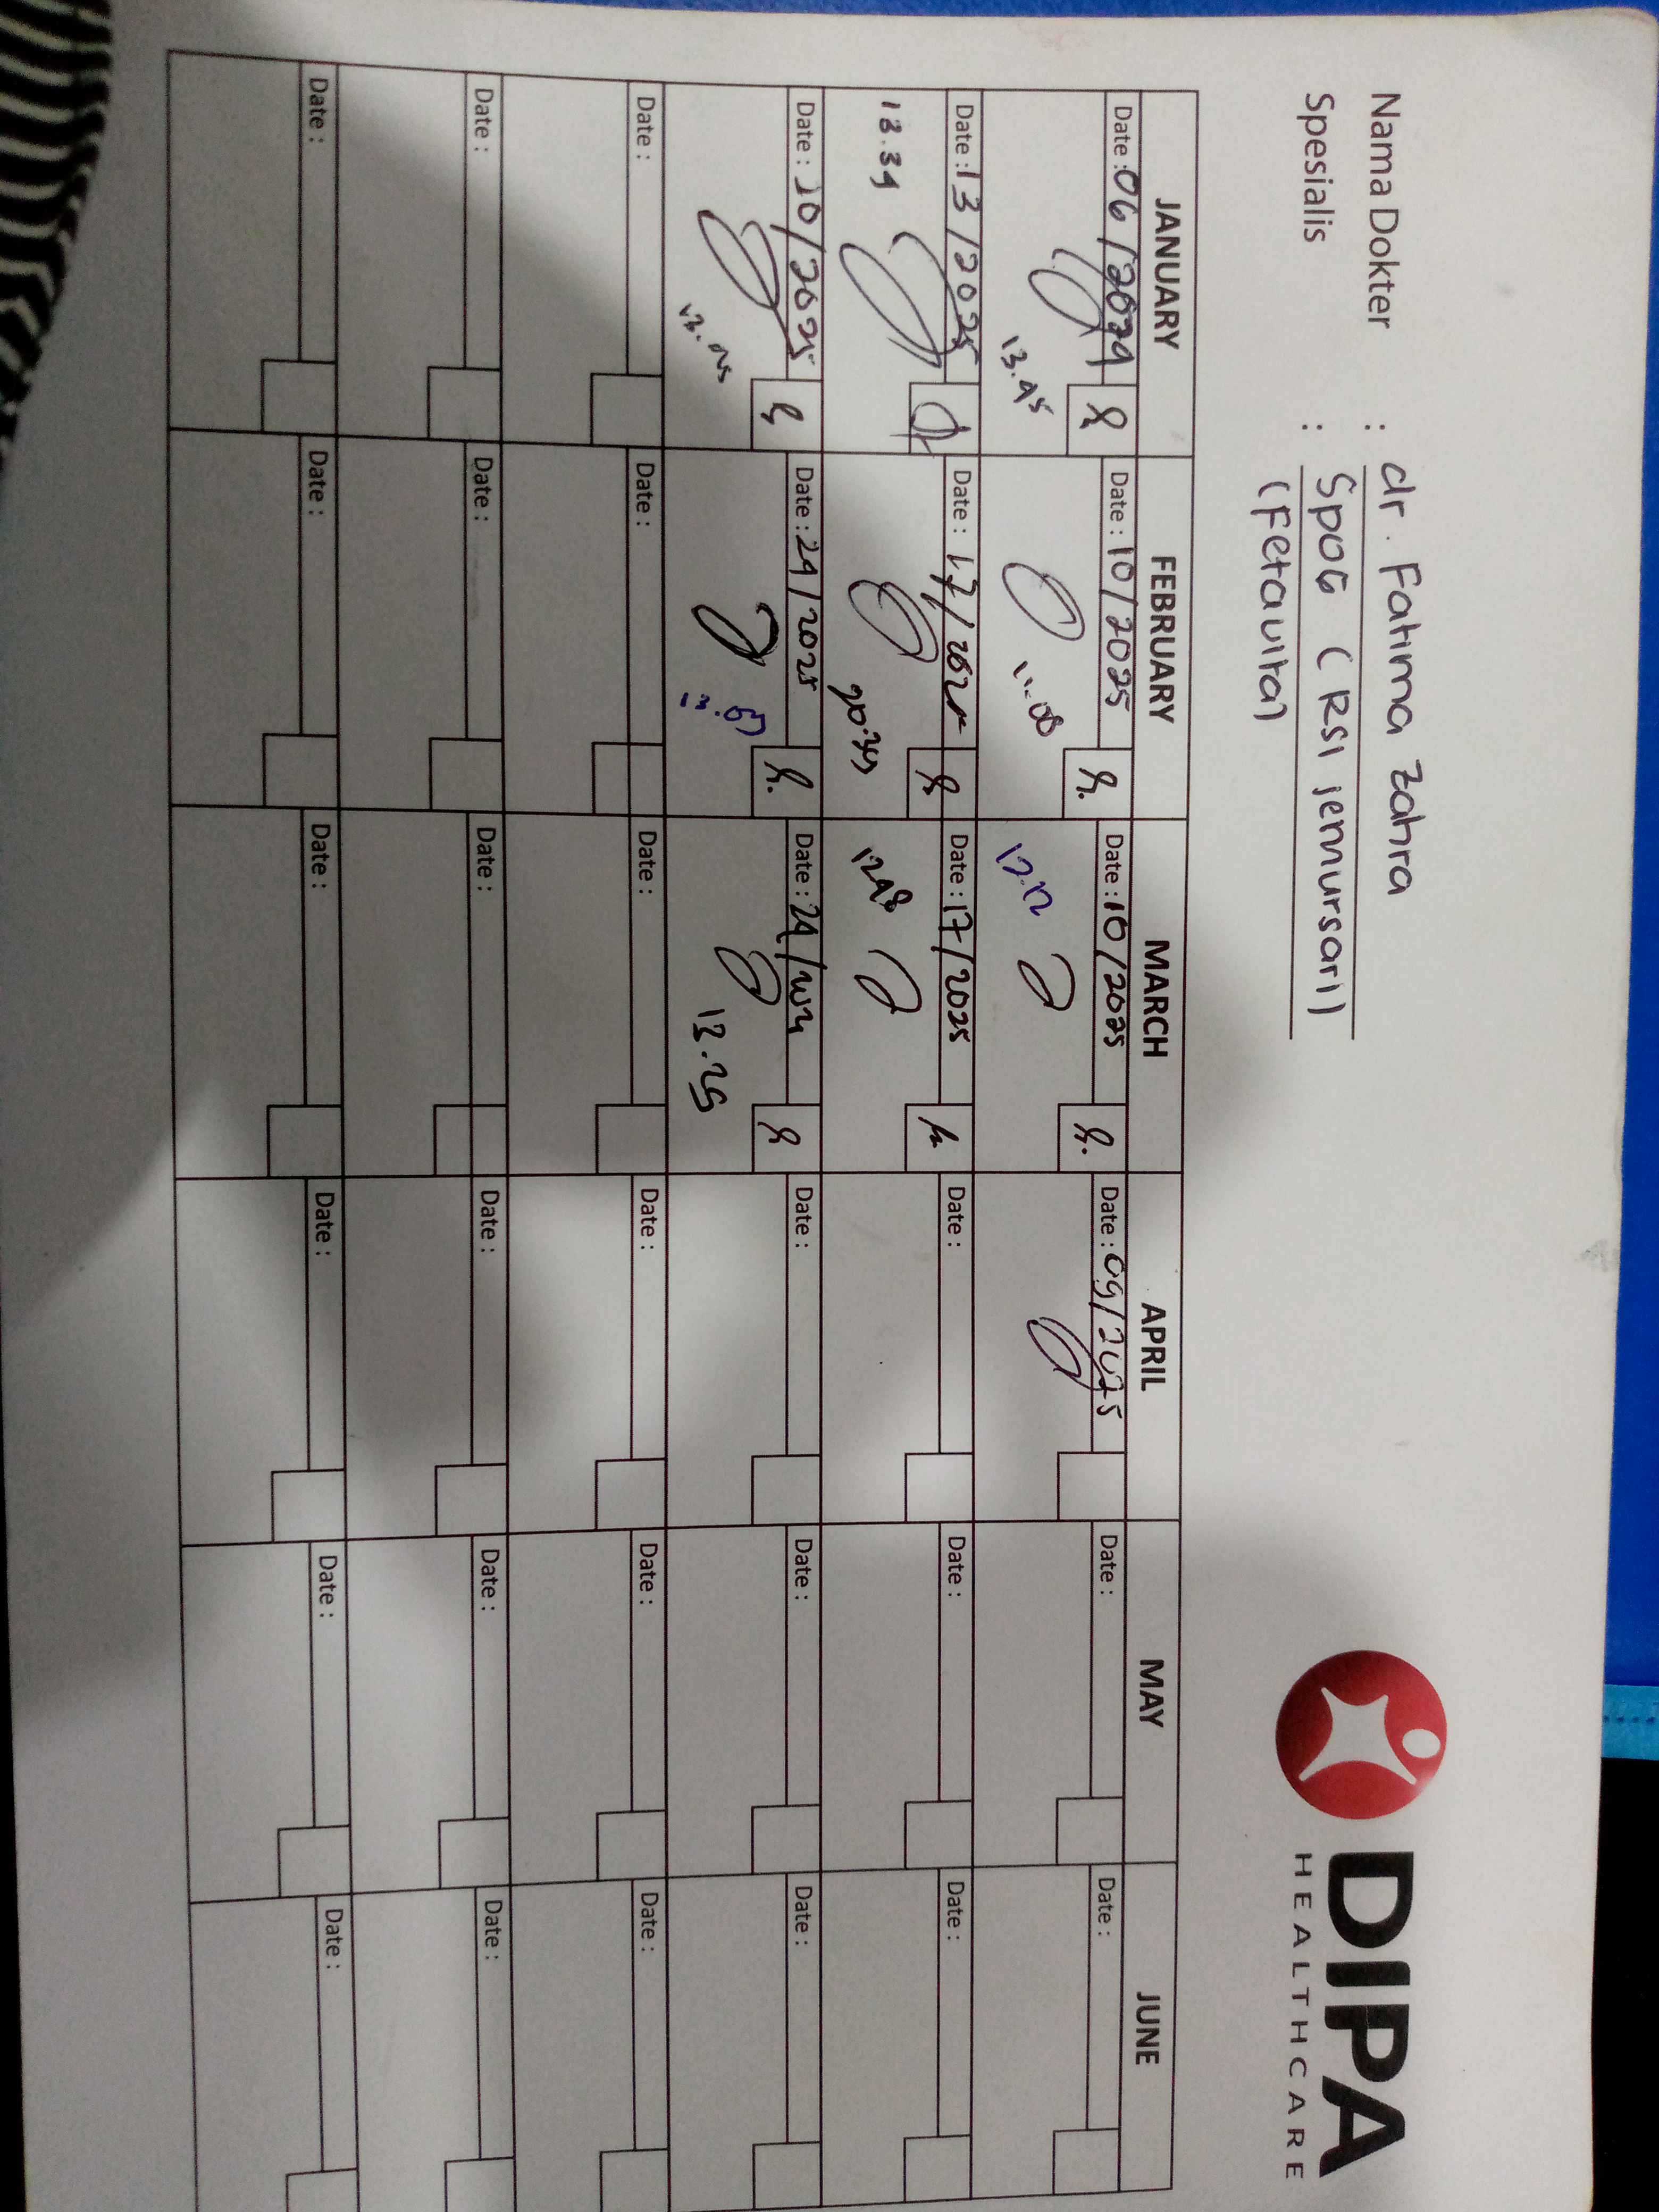 Nama Dokter : dr. Fatima Zahra
Spesialis : SpOG (RSI jemursari)
(Fetavita)
DIPA
HEALTHCARE
JANUARY FEBRUARY MARCH APRIL MAY JUNE
Date : 06/2029 Date : 10/2025 Date : 10/2025 Date : 09/2025 Date : Date :
13.45 11.08 12.12
Date : 13/2025 Date : 17/2025 Date : 17/2025 Date : Date : Date :
13.34 12.48
Date : 20/2025 Date : 24/2025 Date : 24/2025 Date : Date : Date :
13.25
Date : Date : Date : Date : Date : Date :
Date : Date : Date : Date : Date : Date :
Date : Date : Date : Date : Date : Date :